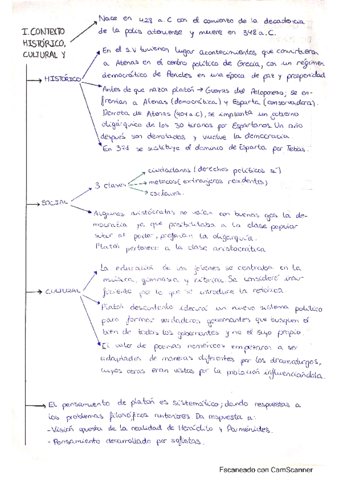 Nace en 428 a.C con el comienzo de la decadencia
de la polis ateniense y muere en 348 a.C.
I. CONTEXTO
HISTÓRICO,
CULTURAL Y
HISTÓRICO
En el s.V tuvieron lugar acontecimientos que convirtieron
a Atenas en el centro político de Grecia, con un régimen
democrático de Pericles en una época de paz y prosperidad
Antes de que nazca platón → Guerra del Peloponeso, se en-
frentan a Atenas (democrática) y Esparta (conservadora).
Derrota de Atenas (404 a.C), se implanta un gobierno
oligárquico de los 30 tiranos por Espartanos. Un año
después son derrotados y vuelve la democracia
En 371 se sustituye el dominio de Esparta por Tebas.
SOCIAL
3 clases
ciudadanos (derechos políticos sí)
metecos (extranjeros residentes)
esclavos
Algunos aristócratas no veían con buenos ojos la de-
mocracia ya que posibilitaba a la clase popular
subir al poder, preferían la oligarquía.
Platón pertenece a la clase aristocrática
CULTURAL
La educación de los jóvenes se centraba en la
música, gimnasia y Se consideró insu-
ficiente por lo que se introduce la retórica
Platón descontento idearía un nuevo sistema político
para formar verdaderos gobernantes que busquen el
bien de todos los gobernantes y no el suyo propio.
El valor de poemas homéricos empezaron a ser
de maneras diferentes por los dramaturgos,
cuyas obras eran vistas por la población influenciándola.
El pensamiento de platón es sistemático; dando respuestas a
los problemas filosóficos anteriores. Da respuesta a:
- Visión opuesta de la realidad de Heráclito y Parménides.
- Pensamiento desarrollado por sofistas.
Escaneado con CamScanner